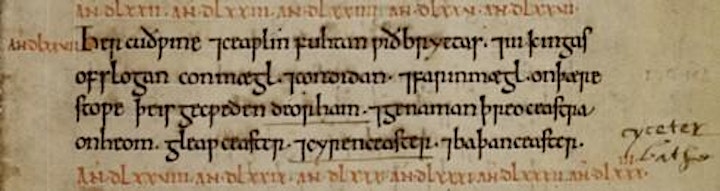 AN·DLXXII. AN·DLXXIII. AN·DLXXIIII. AN·DLXXV. AN·DLXXVI.
AN·DLXXVII. Her cuðƿine ⁊ceaƿlin fuhtan ƿið bryttas. ⁊iii kingas
ofslogan conmægl. ⁊condidan. ⁊farinmægl. onþære
stoƿe þeis gecƿeden deorham. ⁊genaman þreo ceastra
onheom. gleaƿceaster. ⁊cyrenceaster. ⁊baþanceaster.
cyceter
bathe
AN·DLXXVIII. AN·DLXXIX. AN·DLXXX. AN·DLXXXI. AN·DLXXXII. AN·DLXXXIII.